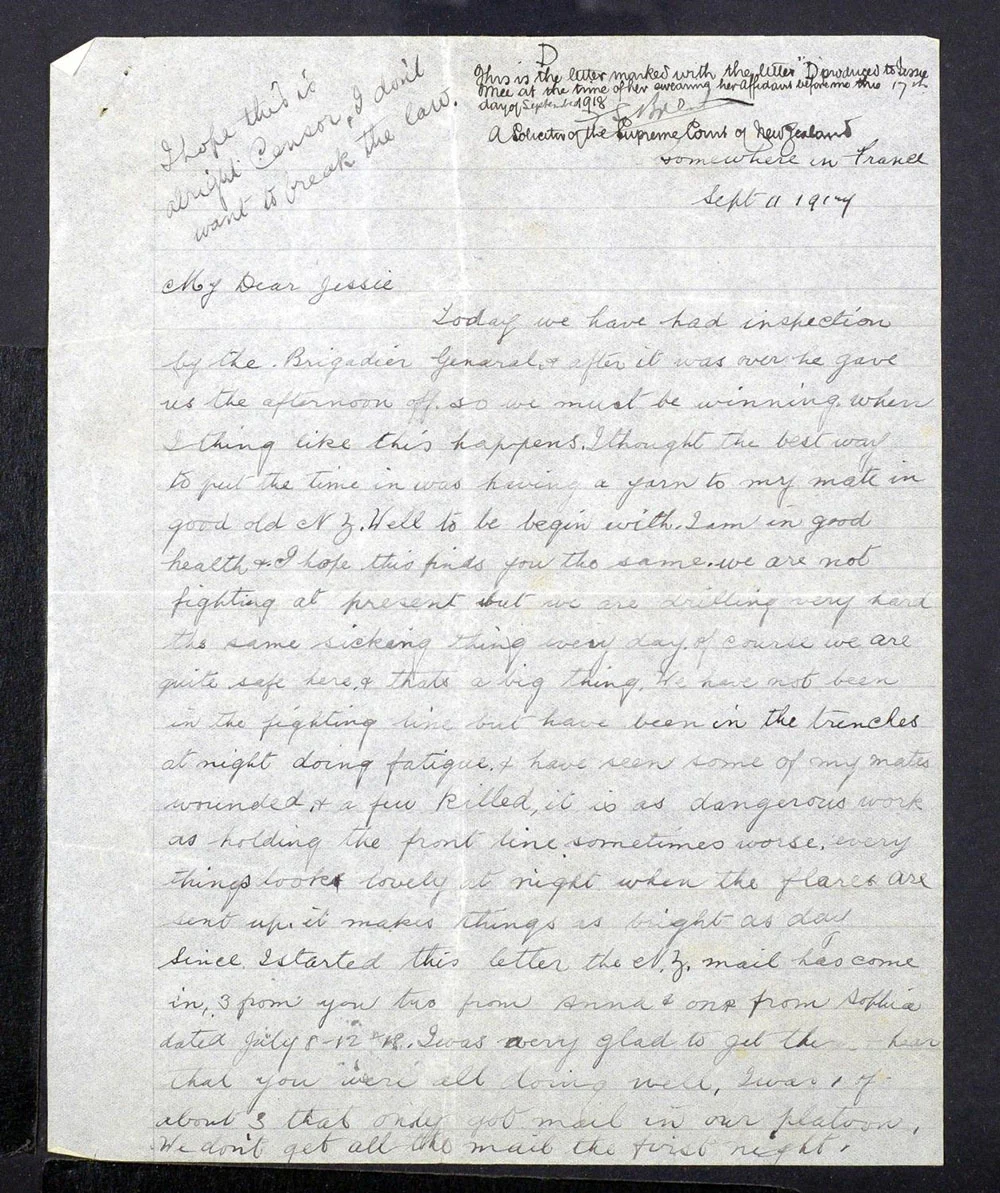 I hope this is
alright Censor, I don't
want to break the law.
D
This is the letter marked with the letter "D" produced to Jessie
Mee at the time of her swearing her Affidavit before me this 17th
day of September 1918
A Solicitor of the Supreme Court of New Zealand
Somewhere in France
Sept 11 1917
My Dear Jessie
Today we have had inspection
by the . Brigadier General. & after it was over he gave
us the afternoon off. so we must be winning. when
I thing like this happens. I thought the best way
to put the time in was having a yarn to my mate in
good old N Z. Well to be begin with. I am in good
health & I hope this finds you the same. we are not
fighting at present but we are drilling very hard
the same sicking thing every day. of course we are
quite safe here, & thats a big thing. We have not been
in the fighting line but have been in the trenches
at night doing fatigue. & have seen some of my mates
wounded, & a few killed, it is as dangerous work
as holding the front line sometimes worse. every
things looks lovely at night when the flares are
sent up. it makes things as bright as day
Since I started this letter the N.Z. mail has come
in, 3 from you two from Anna & one from Sophia
dated July 8 - 12 & 18. I was very glad to get the hear
that you were all doing well, I was 1 of
about 3 that only got mail in our platoon.
We don't get all the mail the first night.